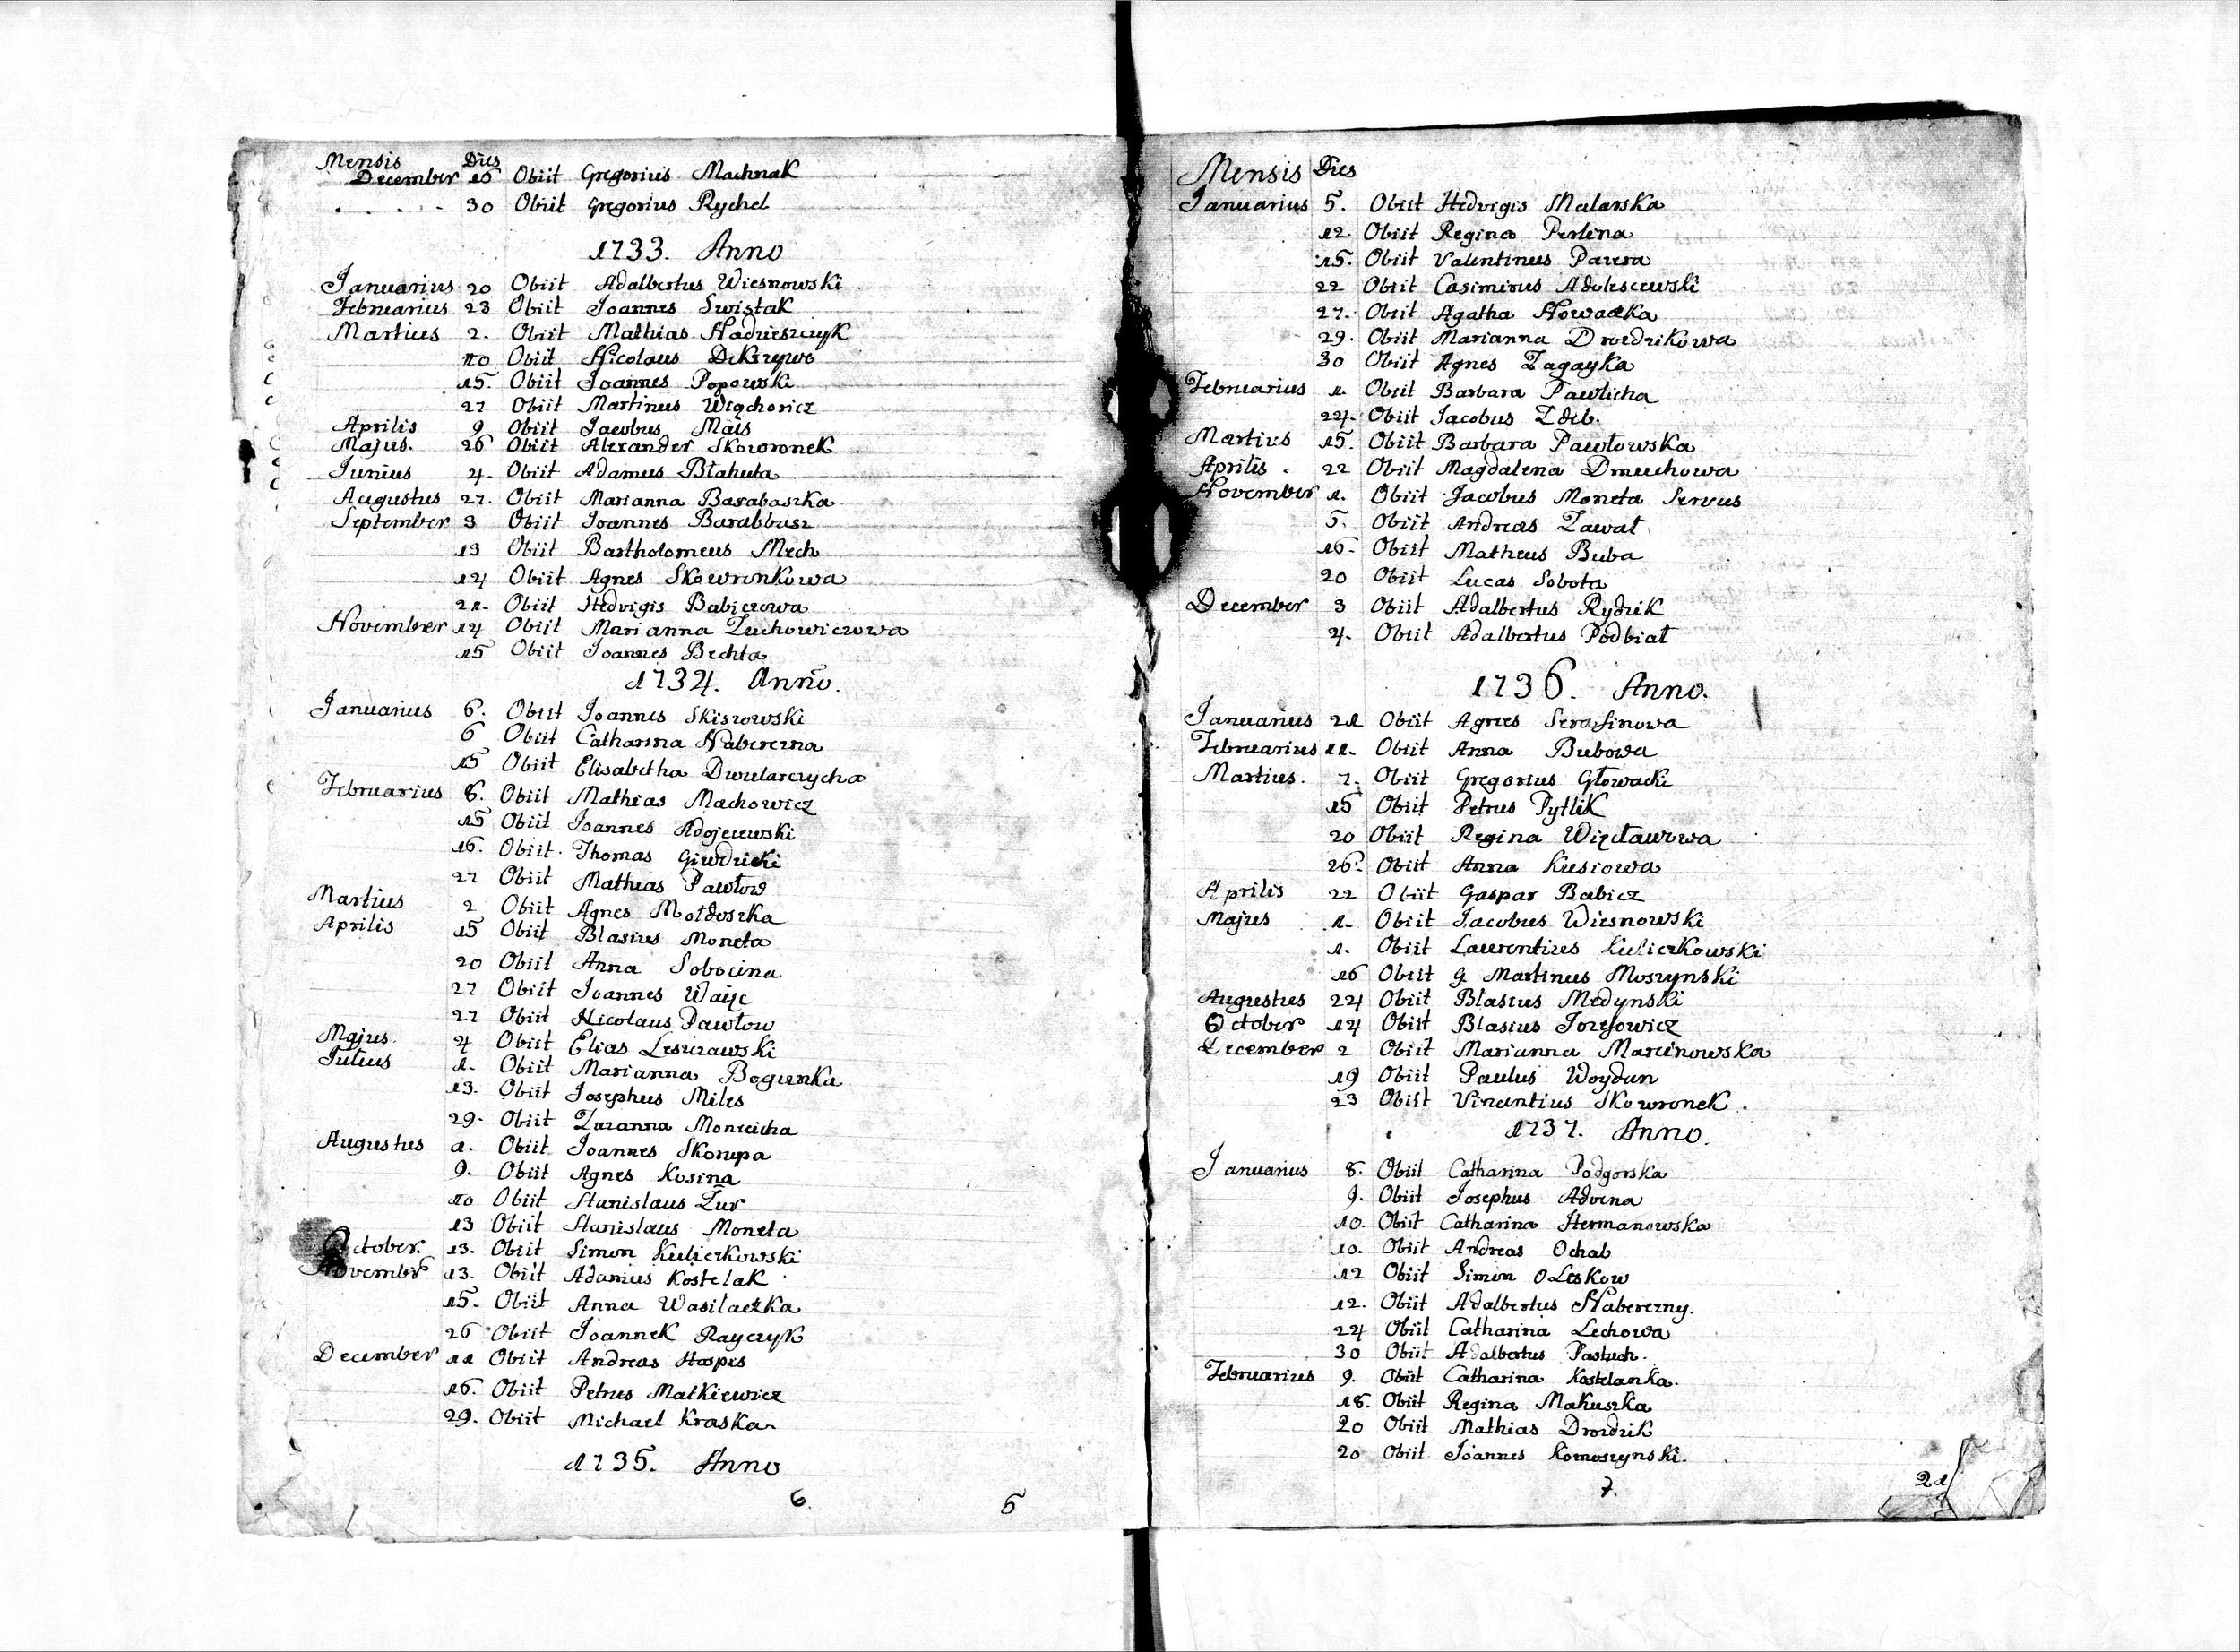 Mensis Dies
December 15 Obiit Gregorius Machnak
. . . . . 30 Obiit Gregorius Rychel
1733. Anno
Januarius 20 Obiit Adalbertus Wiesnowski
Februarius 23 Obiit Joannes Swistak
Martius 2. Obiit Mathias Nadzieszczyk
10 Obiit Nicolaus
15. Obiit Joannes Popowski
27 Obiit Martinus Wiąchowicz
Aprilis 9 Obiit Jacobus Mais
Majus. 26 Obiit Alexander Skowronek
Junius 4. Obiit Adamus Błahuta
Augustus 27. Obiit Marianna Barabaszka
September 3 Obiit Joannes Barabbasz
13 Obiit Bartholomeus Mech
14 Obiit Agnes Skowronkowa
21. Obiit Hedvigis Babiczowa
November 14 Obiit Marianna Zuchowiczowa
15 Obiit Joannes Bechta
1734. Anno.
Januarius 6. Obiit Joannes Skiszowski
6 Obiit Catharina Naberezna
15 Obiit Elisabetha Dwularczycha
Februarius 6. Obiit Mathias Machowicz
15 Obiit Joannes Adojewski
16. Obiit Thomas
27 Obiit Mathias Pawłow
Martius 2 Obiit Agnes Mołdoszka
Aprilis 15 Obiit Blasius Moneta
20 Obiit Anna Sobocina
27 Obiit Joannes
27 Obiit Nicolaus Pawłow
Majus. 4 Obiit Elias Leszczawski
Julius 1. Obiit Marianna Bogunka
13. Obiit Josephus Miles
29. Obiit Zuzanna Moncicha
Augustus 1. Obiit Joannes Skorupa
9. Obiit Agnes Kosina
10 Obiit Stanislaus Żur
13 Obiit Stanislaus Moneta
October. 13. Obiit Simon Kuliczkowski
November 13. Obiit Adamus Kostelak
15. Obiit Anna Wasilaczka
26 Obiit Joannek Rayczyk
December 11 Obiit Andreas Hospes
16. Obiit Petrus Matkiewicz
29. Obiit Michael Kraska
1735. Anno
6.
6
Mensis Dies
Januarius 5. Obiit Hedvigis Malarska
12 Obiit Regina Perlina
15. Obiit Valentinus Pacura
22 Obiit Casimirus Adolescewski
27. Obiit Agatha Nowaczka
29. Obiit Marianna Drozdzikowa
30 Obiit Agnes Zagayka
Februarius 1. Obiit Barbara Pawlicha
24. Obiit Jacobus Zdeb.
Martius 15. Obiit Barbara Pawłowska
Aprilis . 22 Obiit Magdalena Dmuchowa
November 1. Obiit Jacobus Moneta Servus
5. Obiit Andreas Zawał
16. Obiit Matheus Buba
20 Obiit Lucas Sobota
December 3 Obiit Adalbertus Rydzik
4. Obiit Adalbertus Podbiał
1736. Anno.
Januarius 21 Obiit Agnes Serafinowa
Februarius 11. Obiit Anna Bubowa
Martius. 7. Obiit Gregorius Głowacki
15 Obiit Petrus Pytlik
20 Obiit Regina Więcławowa
26. Obiit Anna Kusiowa
Aprilis 22 Obiit Gaspar Babicz
Majus 1. Obiit Jacobus Wiesnowski
1. Obiit Laurentius Kuliczkowski
16 Obiit G. Martinus Moszynski
Augustus 24 Obiit Blasius Medynski
October 14 Obiit Blasius Jozefowicz
December 2 Obiit Marianna Marcinowska
19 Obiit Paulus Woydun
23 Obiit Vincentius Skowronek .
1737. Anno.
Januarius 8. Obiit Catharina Podgorska
9. Obiit Josephus Advena
10. Obiit Catharina Hermanowska
10. Obiit Andreas Ochab
12 Obiit Simon Oleskow
12. Obiit Adalbertus Naberezny.
24 Obiit Catharina Lechowa
30 Obiit Adalbertus Pastuch.
Februarius 9. Obiit Catharina Kostelanka.
18. Obiit Regina Makuszka
20 Obiit Mathias Drozdzik
20 Obiit Joannes Komoszynski.
7.
21